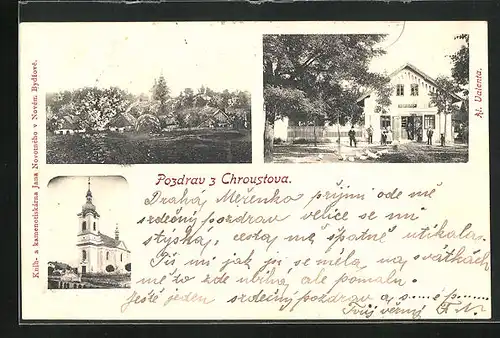 Knih- a kamenotiskárna Jana Novotného v Novém Bydžově.
Al. Valenta.
Pozdrav z Chroustova.
Drahá Měřenko přijmi ode mě
srdečný pozdrav velice se mi
stýská, cesta mě špatně utíkala.
Piš mi jak jsi se měla na svátkách
mě to zde ubíhá, ale pomalu.
Ještě jeden srdečný pozdrav a
Tvůj věrný